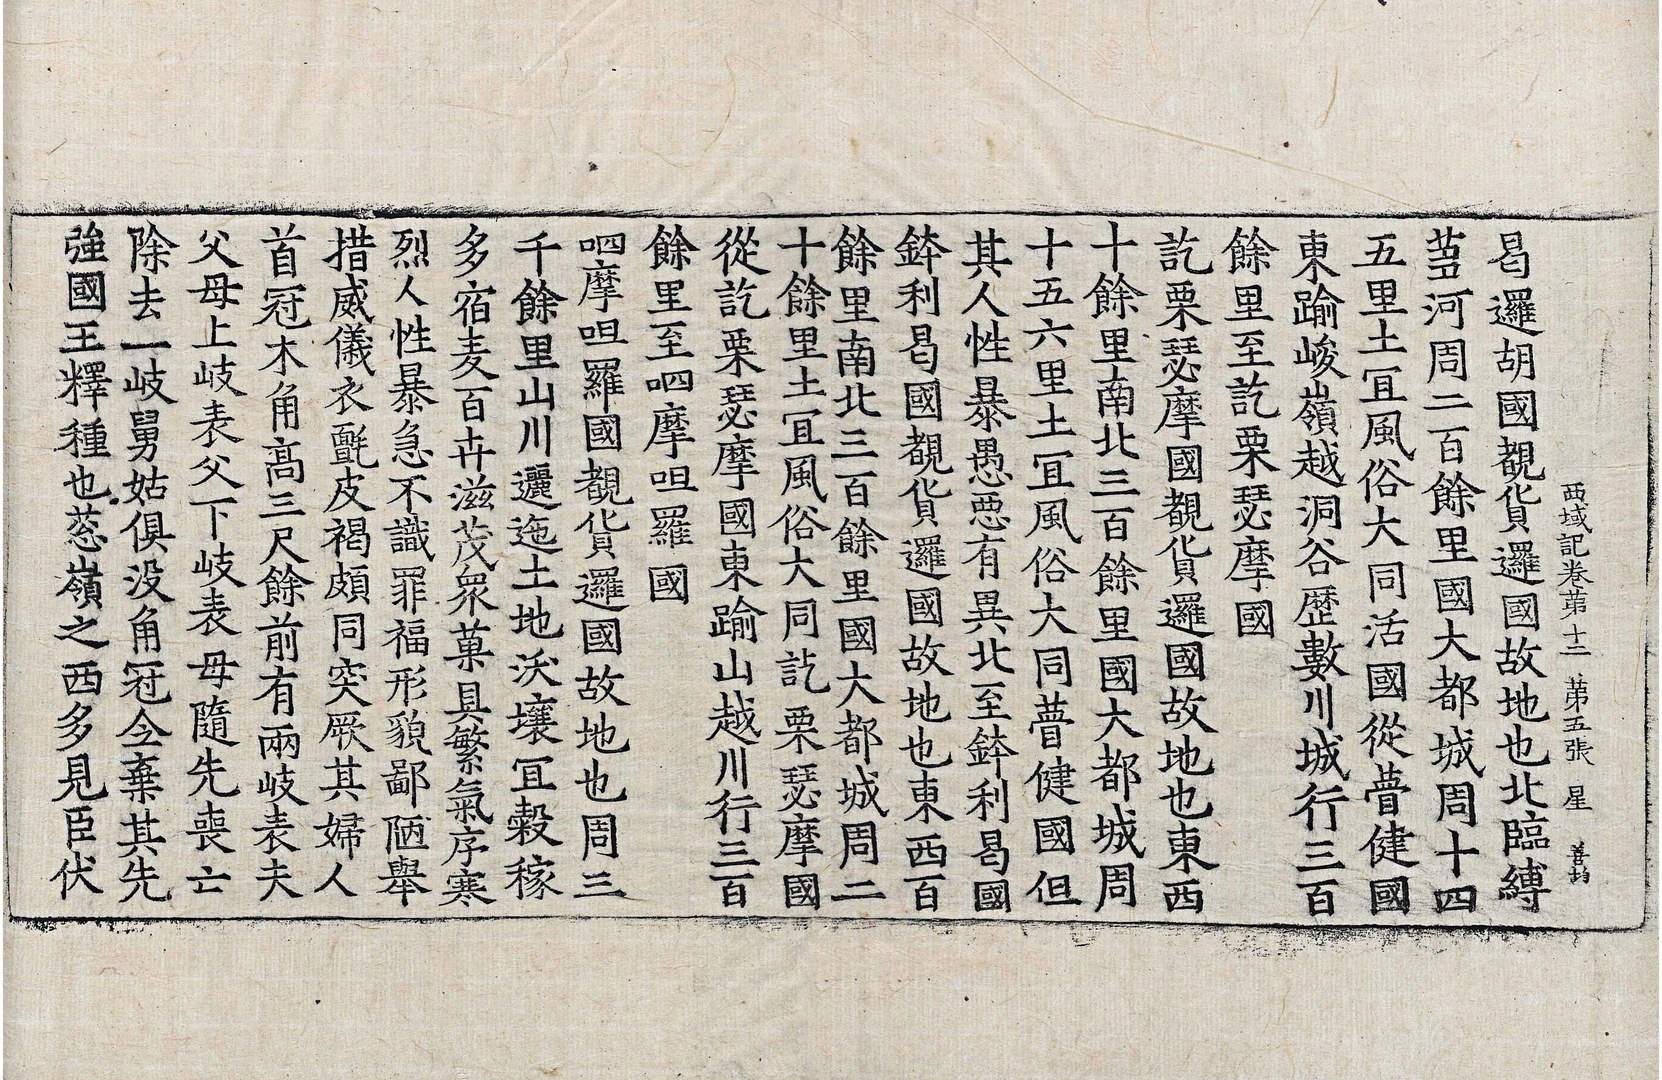 西域記卷第十二 第五張 星 善均
曷邏胡國覩貨邏國故地也北臨縛
蒭河周二百餘里國大都城周十四
五里土冝風俗大同活國從瞢健國
東踰峻嶺越洞谷歷數川城行三百
餘里至訖栗瑟摩國
訖栗瑟摩國覩貨邏國故地也東西
十餘里南北三百餘里國大都城周
十五六里土冝風俗大同瞢健國但
其人性暴愚惡有異北至鉢利曷國
鉢利曷國覩貨邏國故地也東西百
餘里南北三百餘里國大都城周二
十餘里土冝風俗大同訖栗瑟摩國
從訖栗瑟摩國東踰山越川行三百
餘里至呬摩呾羅國
呬摩呾羅國覩貨邏國故地也周三
千餘里山川邐迤土地沃壤冝穀稼
多宿麦百卉滋茂衆菓具繁氣序寒
烈人性暴急不識罪福形貌鄙陋舉
措威儀衣氈皮褐頗同突厥其婦人
首冠木角高三尺餘前有兩岐表夫
父母上岐表父下岐表母隨先喪亡
除去一岐舅姑俱没角冠全棄其先
強國王釋種也葱嶺之西多見臣伏